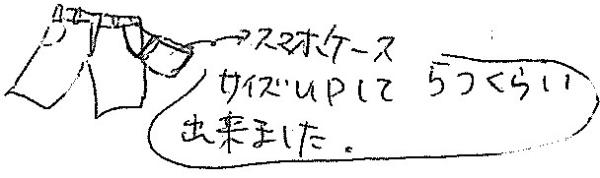 スマホケース
サイズUPして 5つくらい
出来ました。